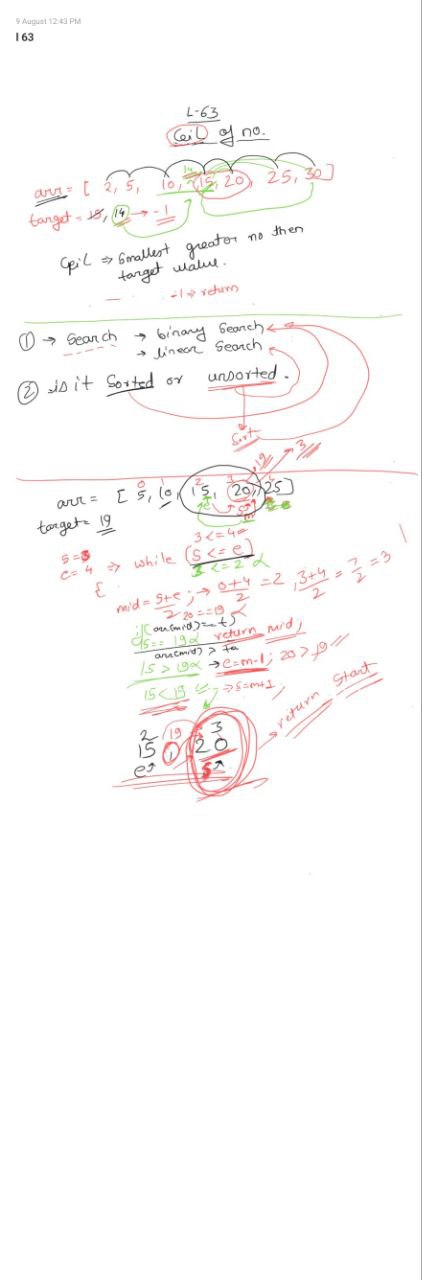 9 August 12:43 PM
l 63
L-63
Ceil of no.
14
arr = [ 2, 5, 10, 15, 20, 25, 30 ]
target = 15, 14 → -1
Ceil ⇒ Smallest greater no then
target value.
-1 ⇒ return
① → Search → binary Search
→ linear Search
② is it Sorted or unsorted.
Sort
19 3
0 1 2 3
arr = [ 5, 10, 15, 20, 25 ]
target = 19
e s m
3 <= 4
s = 3
e = 4 ⇒ while (s <= e)
3 <= 2 α
{
mid = s+e/2 ; → 0+4/2 = 2 , 3+4/2 = 7/2 = 3
20 == 19 α
if (arr(mid) == t)
15 == 19 α return mid;
arr(mid) > ta
15 > 19 α → e = m-1; 20 > 19
15 < 19 ⇒ s = m+1;
2 19 3
15 , 20
e↑ s↑
return start